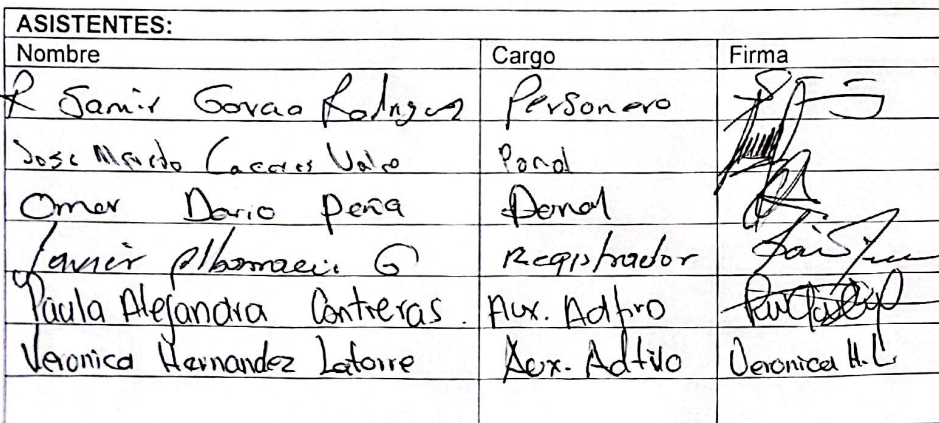 ASISTENTES:
Nombre Cargo Firma
R Samir Rodrigues Personero
Jose Caceres Ponal
Omer Dario Peña Ponal
Javier G Registrador
Paula Alejandra Contreras. Aux. Adtivo
Veronica Hernandez Latorre Aux. Adtivo Veronica H.L